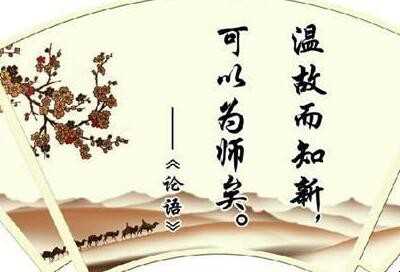 温故而知新，
可以为师矣。
——《论语》